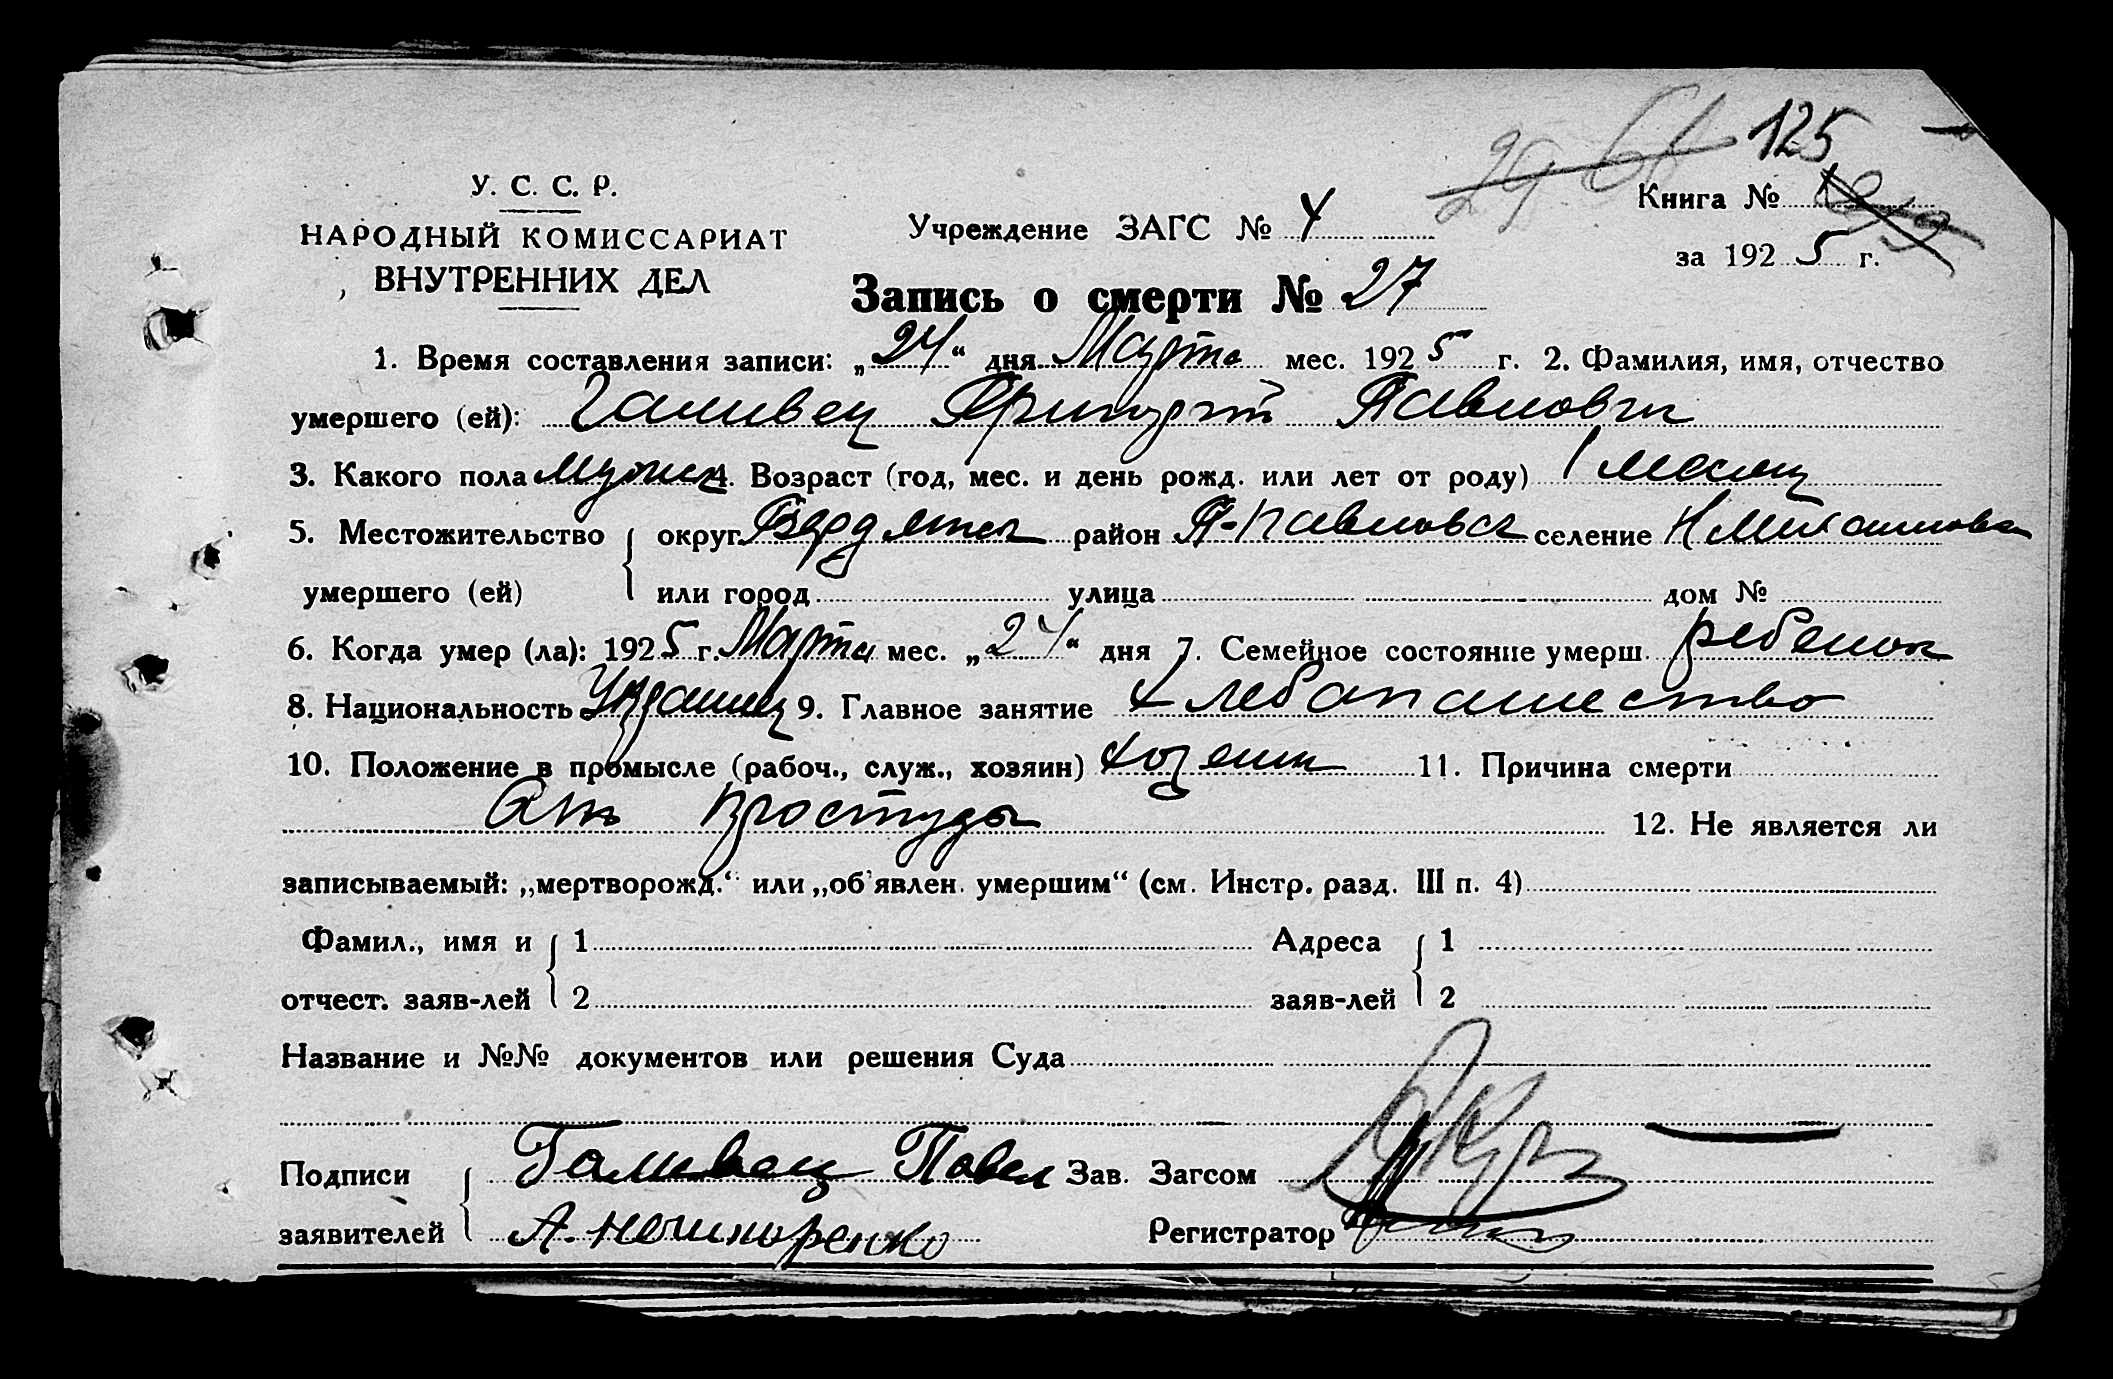 125
У. С. С. Р.
НАРОДНЫЙ КОМИССАРИАТ
ВНУТРЕННИХ ДЕЛ
Учреждение ЗАГС № 4
Книга №
за 1925 г.
Запись о смерти № 27
1. Время составления записи: „24“ дня Марта мес. 1925 г. 2. Фамилия, имя, отчество
умершего (ей): Галивец Григорий Павлович
3. Какого пола мужск 4. Возраст (год, мес. и день рожд. или лет от роду) 1 месяц
5. Местожительство округ Бердянск район А-Павловск селение
умершего (ей) или город улица дом №
6. Когда умер (ла): 1925 г. Марта мес. „24“ дня 7. Семейное состояние умерш. ребенок
8. Национальность Украинец 9. Главное занятие Хлебопашество
10. Положение в промысле (рабоч., служ., хозяин) хозяин 11. Причина смерти
От простуды 12. Не является ли
записываемый: „мертворожд.“ или „об'явлен. умершим“ (см. Инстр. разд. III п. 4)
Фамил., имя и 1 Адреса 1
отчест. заяв-лей 2 заяв-лей 2
Название и №№ документов или решения Суда
Подписи Галивец Павел Зав. Загсом
заявителей А. Регистратор